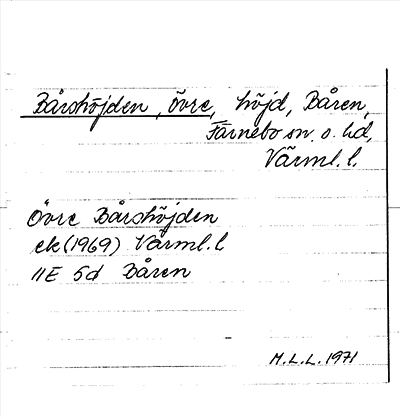 Bårshöjden, Övre, höjd, Båren,
Färnebo sn. o. hd,
Värml. l.
Övre Bårshöjden
ek (1969) Värml. l
11E 5d Båren
M.L.L. 1971